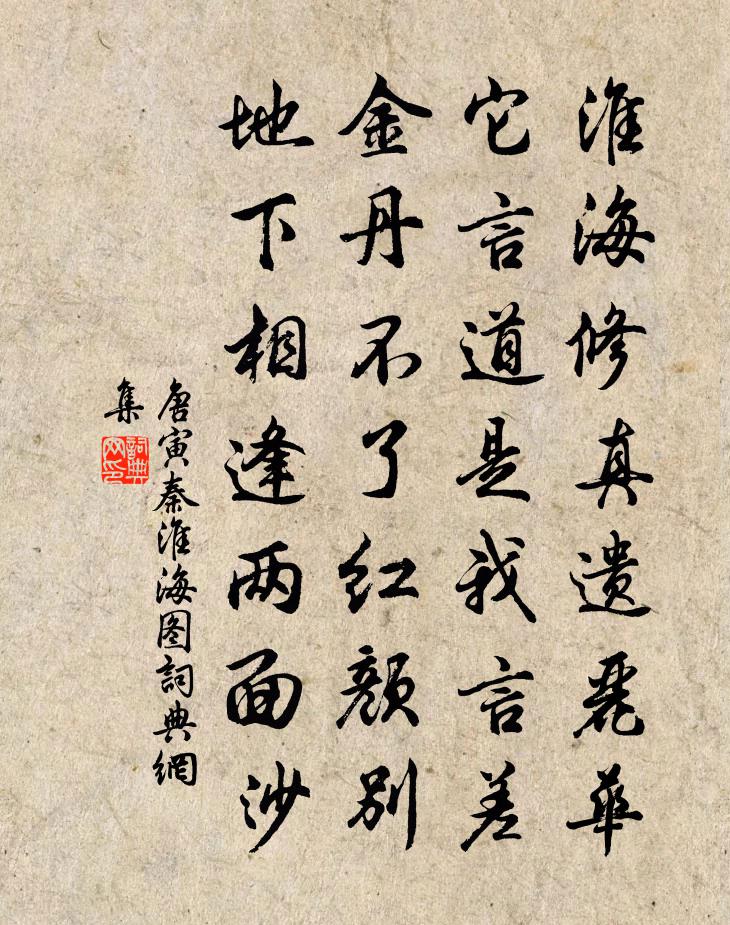 淮海修真遗丽华
它言道是我言差
金丹不了红颜别
地下相逢两面沙
唐寅秦淮海图詞典網
集
詞典网印